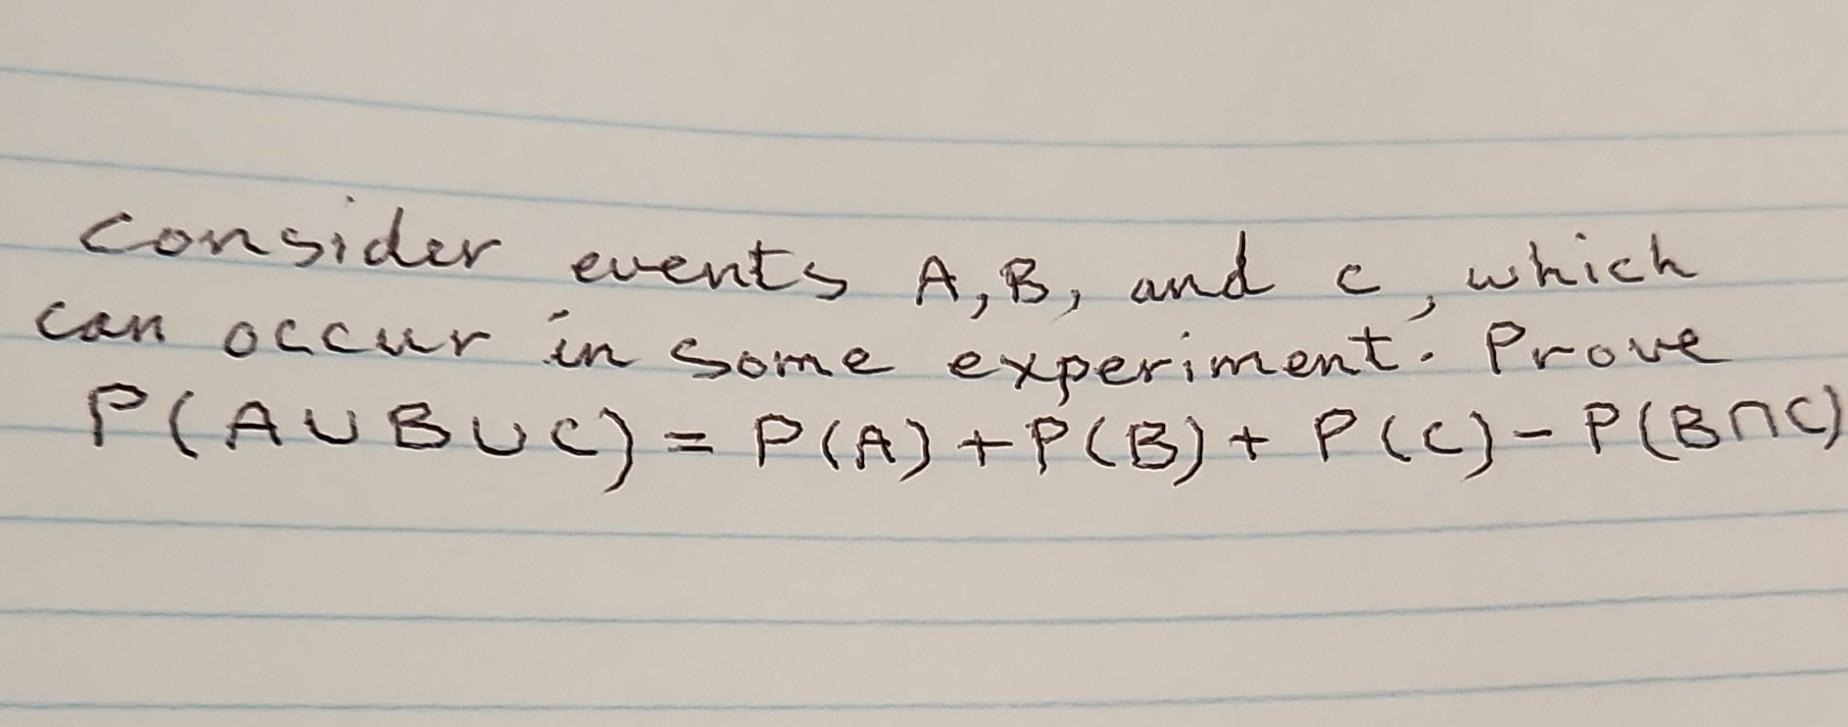 consider events A, B, and c, which
can occur in some experiment. Prove
P(A∪B∪C) = P(A)+P(B)+ P(C)-P(B∩C)